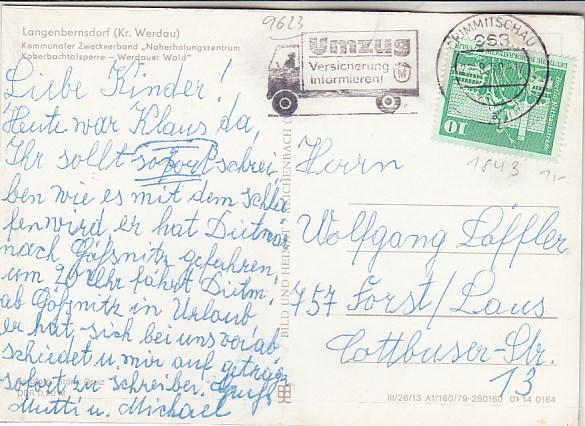 Langenbernsdorf (Kr. Werdau)
Kommunaler Zweckverband „Naherholungszentrum
Koberbachtalsperre — Werdauer Wald"
9623
Umzug
Versicherung
informieren!
CRIMMITSCHAU
963
10
1843 11,-
Liebe Kinder!
Heute war Klaus da,
Ihr sollt sofort schrei,
ben wie es mit dem schla
fen wird, er hat Dietmar
nach Gößnitz gefahren,
um 20 Uhr fährt Dietm.
ab Gößnitz in Urlaub,
er hat sich bei uns verab
schiedet u. mir auf getrag
sofort zu schreiben. Gruß
Mutti u. Michael
DDR 0,20 M
BILD UND HEIMAT REICHENBACH
Herrn
Wolfgang Löffler
757 Forst/Laus
Cottbuser-Str.
13
III/26/13 A1/160/79-280160 01 14 0164